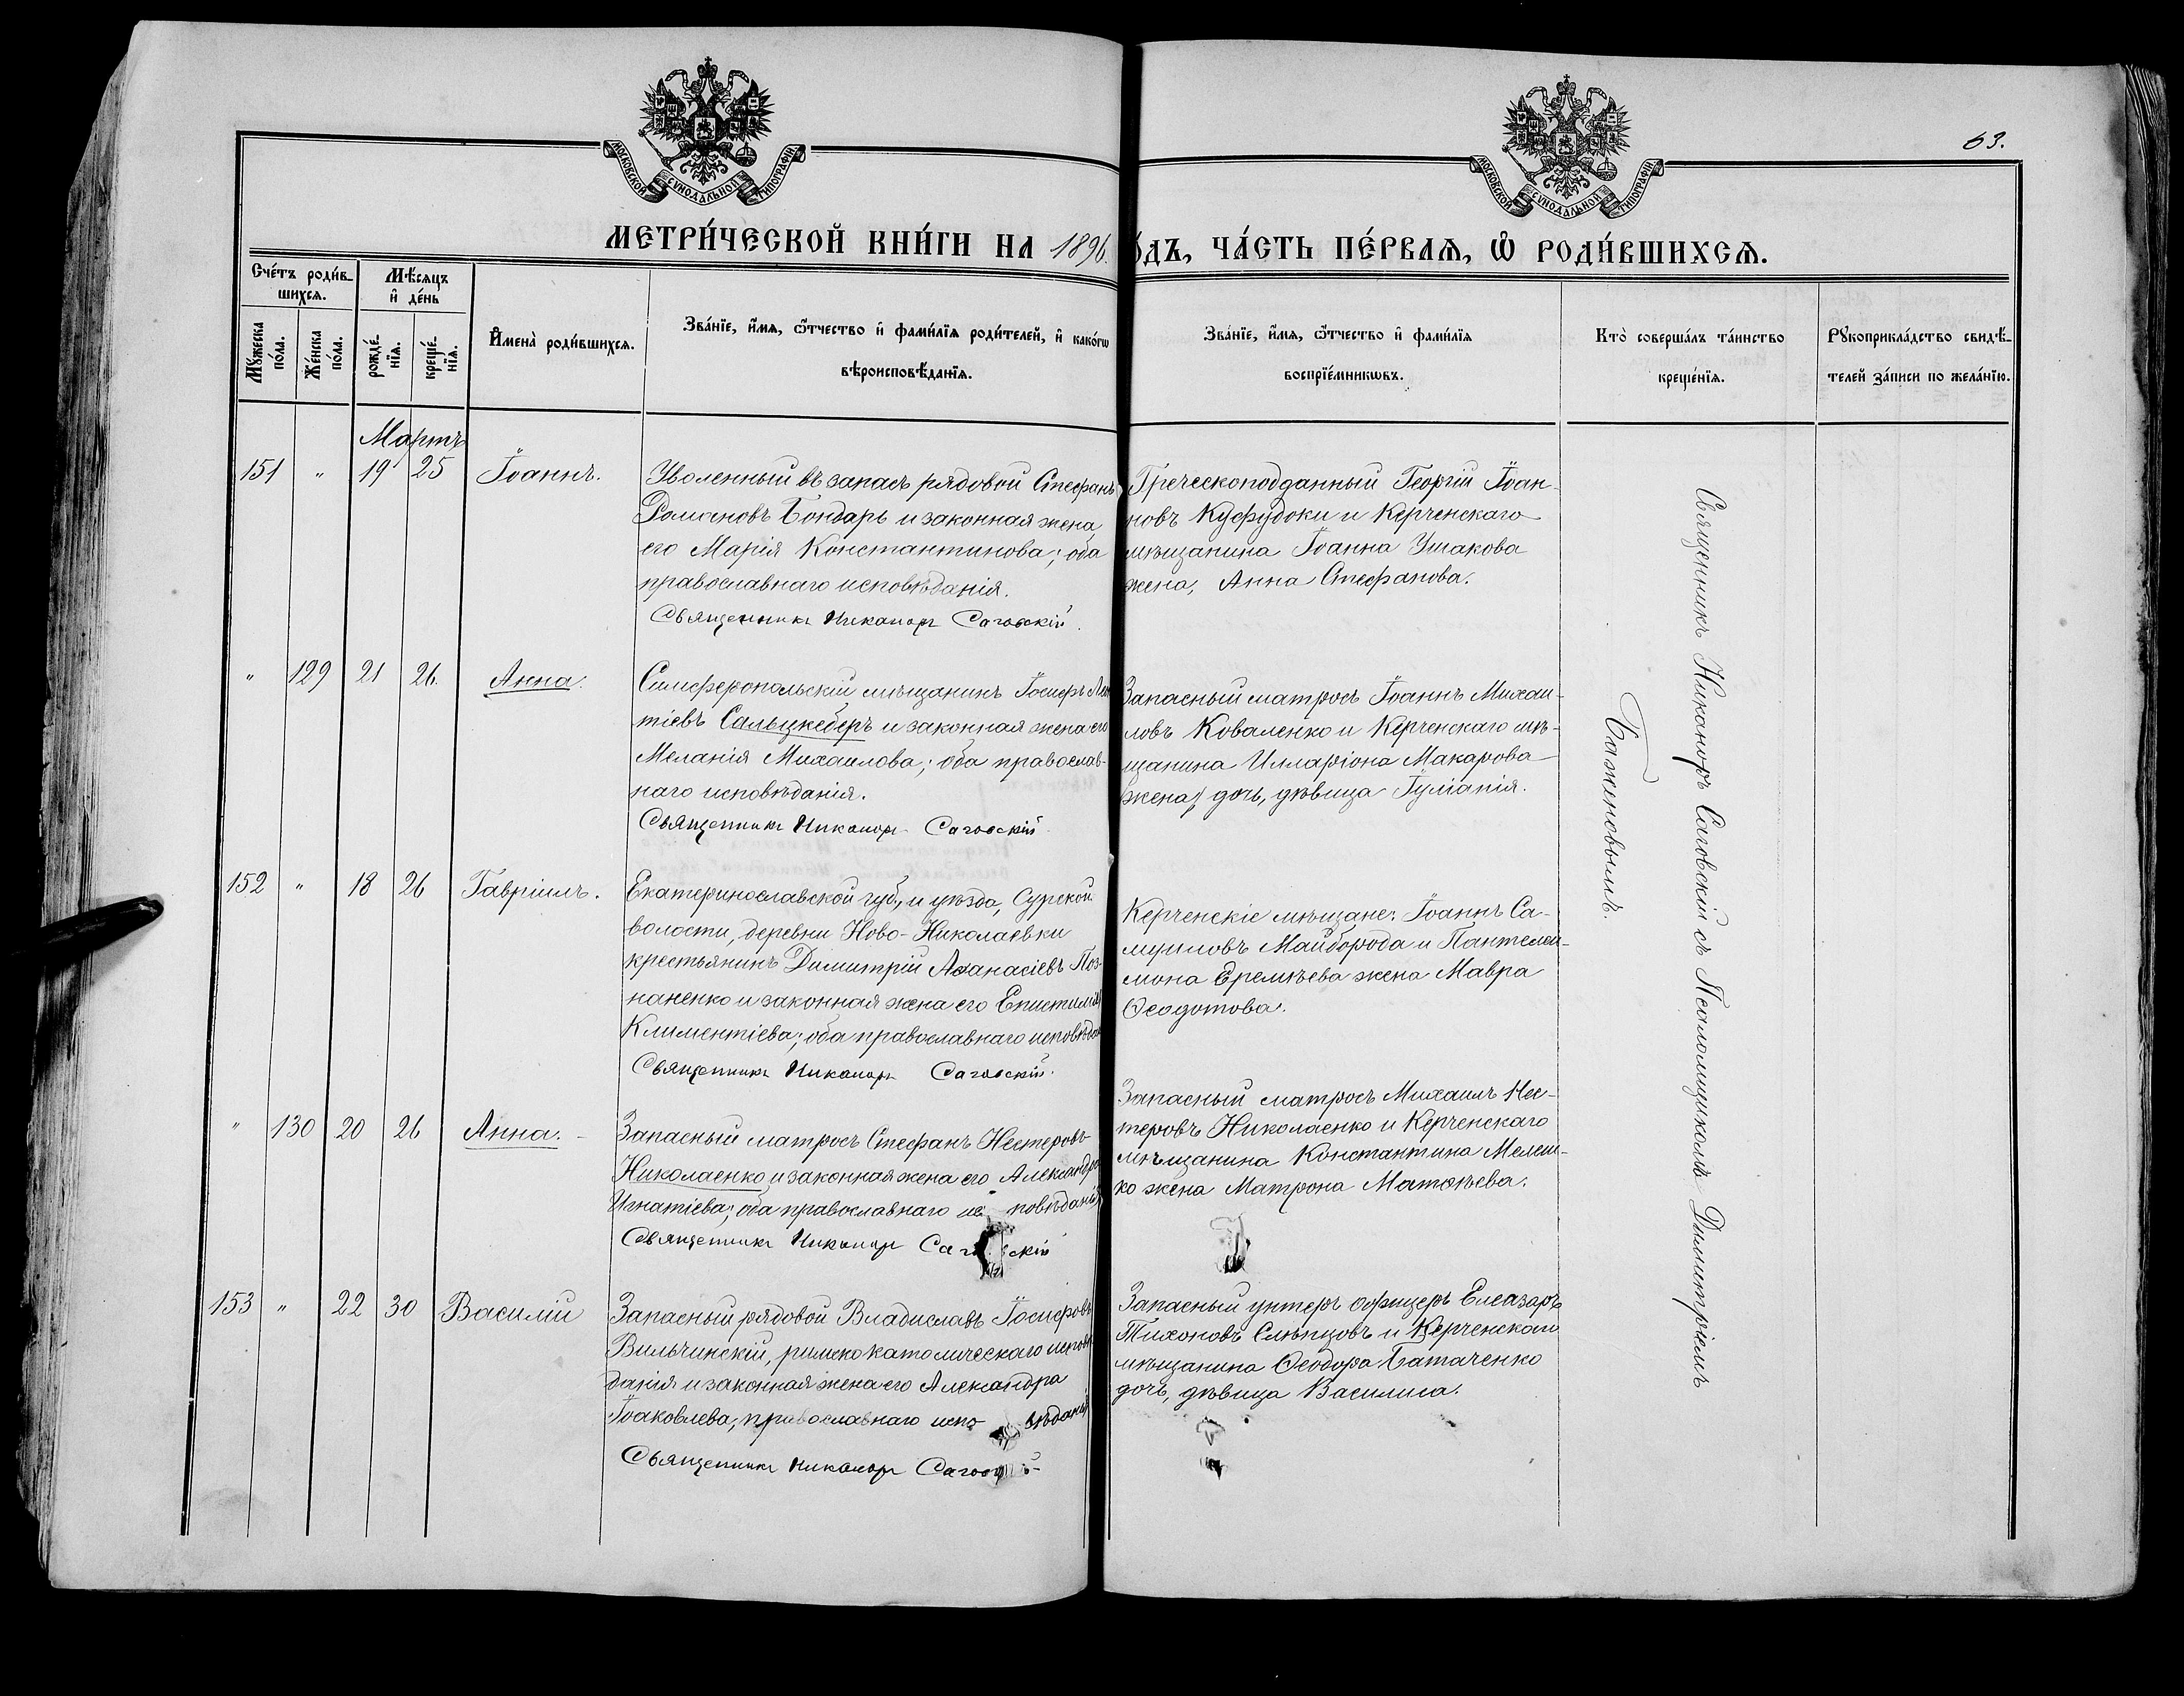 МОСКОВСКОЙ СѴНОДАЛЬНОЙ ТИПОГРАФІИ
МОСКОВСКОЙ СѴНОДАЛЬНОЙ ТИПОГРАФІИ
63.
МЕТРИ́ЧЕСКОЙ КНИ́ГИ НА 1896.
ЧА́СТЬ ПЕ́РВАѦ, Ѽ РОДИ́ВШИХСѦ.
Сче́тъ роди́в-
шихсѧ.
Мѣ́сѧцъ
и҆ де́нь
Мꙋ́жеска
по́ла.
Же́нска
по́ла.
рожде́-
нїѧ.
креще́-
нїѧ.
И҆мена̀ роди́вшихсѧ.
Зва́нїе, и҆́мѧ, ѻ҆́тчество и҆ фами́лїѧ роди́телей, и҆ како́гѡ
вѣроисповѣ́данїѧ.
Зва́нїе, и҆́мѧ, ѻ҆́тчество и҆ фами́лїѧ
воспрїе́мникѡвъ.
Кто̀ соверша́лъ та́инство
креще́нїѧ.
Рꙋкоприкла́дство свидѣ́-
телей за́писи по жела́нїю.
Мартъ
151 " 19 25 Іоаннъ.
Уволенный въ запасъ рядовой Стефанъ
Романовъ Бондарь и законная жена
его Марія Константинова; оба
православнаго исповѣданія.
Священникъ Никаноръ Саговскій.
Греческоподданный Георгій Іоан-
новъ Куфудоки и Керченскаго
мѣщанина Іоанна Ушакова
жена, Анна Стефанова.
" 129 21 26. Анна.
Симферопольскій мѣщанинъ Іосифъ
тіевъ Сальцкеберъ и законная жена его
Меланія Михаилова; оба православ-
наго исповѣданія.
Священникъ Никаноръ Саговскій
Запасный матросъ Іоаннъ Михаи-
ловъ Коваленко и Керченскаго мѣ-
щанина Илларіона Макарова
жена, дочь, дѣвица Іуліанія.
152 " 18 26 Гавріилъ.
Екатеринославской губ., и уѣзда, Сурской
волости, деревни Ново-Николаевки
крестьянинъ Димитрій Аѳанасіевъ Поз-
наненко и законная жена его Епистимія
Климентіева; оба православнаго исповѣдан
Священникъ Никаноръ Саговскій.
Керченскіе мѣщане: Іоаннъ Са-
муиловъ Майборода и Пантелеи-
мона Еремѣева жена Мавра
Ѳеодотова.
" 130 20 26 Анна.
Запасный матросъ Стефанъ Нестеровъ
Николаенко и законная жена его Александра
Игнатіева; оба православнаго ис повѣданія
Священникъ Никаноръ Саг скій
Запасный матросъ Михаилъ Нес-
теровъ Николаенко и Керченскаго
мѣщанина Константина Мелеш-
ко жена Матрона Матѳѣева.
153 " 22 30 Василій
Запасный рядовой Владиславъ Іосифовъ
Вильчинскій, римскокатолическаго исповѣ
данія и законная жена его Александра
Іоаковлева, православнаго испо- вѣданія
Священникъ Никаноръ
Запасный унтеръ офицеръ Елеазаръ
Тихоновъ Слѣпцовъ и Керченскаго
мѣщанина Ѳеодора Батаченко
дочь, дѣвица Василиса.
Священникъ Никаноръ Саговскій съ Псаломщикомъ Димитріемъ
Баженовымъ.